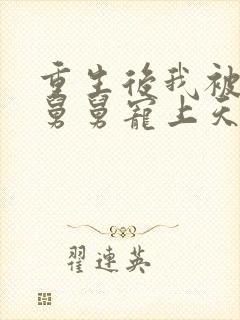 重生后我被
舅舅寵上天
翟連英